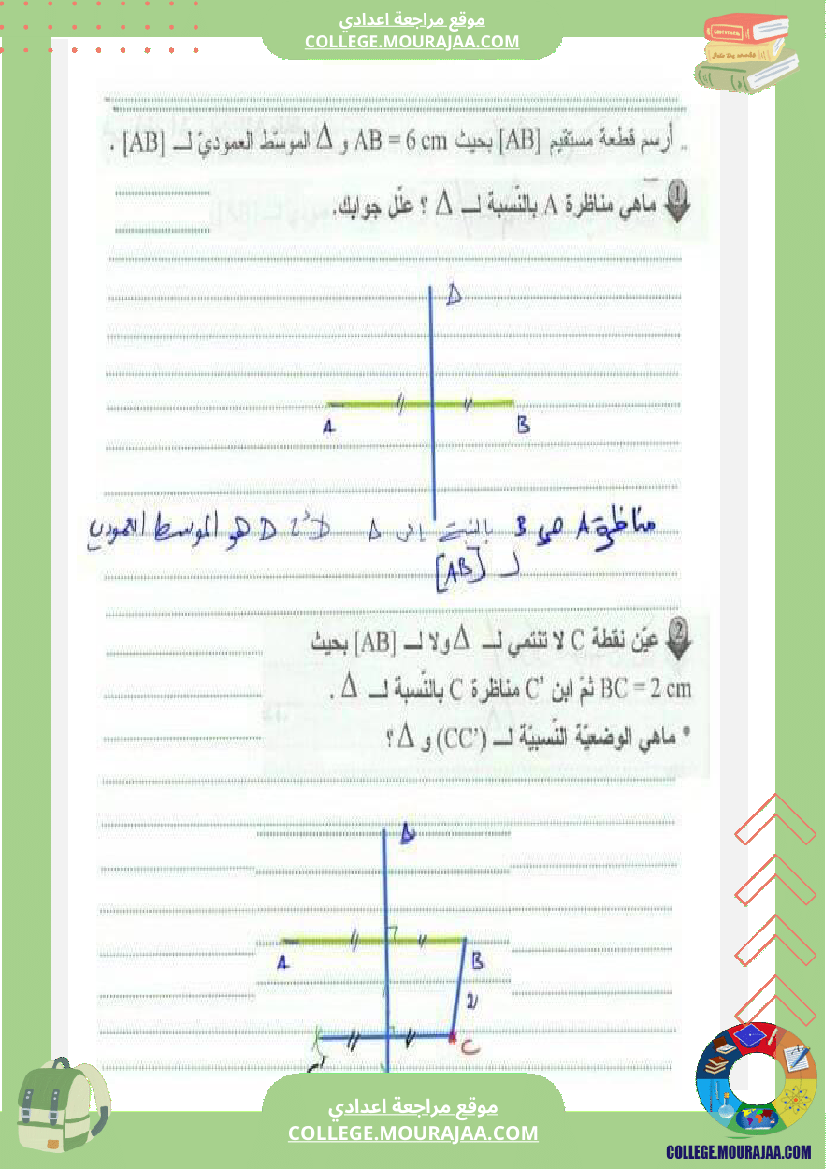 موقع مراجعة اعدادي
COLLEGE.MOURAJAA.COM
.. أرسم قطعة مستقيم [AB] بحيث AB = 6 cm و Δ الموسّط العموديّ لـ [AB] .
1 ماهي مناظرة A بالنّسبة لـ Δ ؟ علّل جوابك.
Δ
A
B
مناظرة A هي B بالنسبة إلى Δ لأن Δ هو الموسط العمودي
لـ [AB]
2 عيّن نقطة C لا تنتمي لـ Δ ولا لـ [AB] بحيث
BC = 2 cm ثمّ ابن C' مناظرة C بالنّسبة لـ Δ .
• ماهي الوضعيّة النّسبيّة لـ (CC') و Δ ؟
Δ
A
B
2
C
موقع مراجعة اعدادي
COLLEGE.MOURAJAA.COM
COLLEGE.MOURAJAA.COM